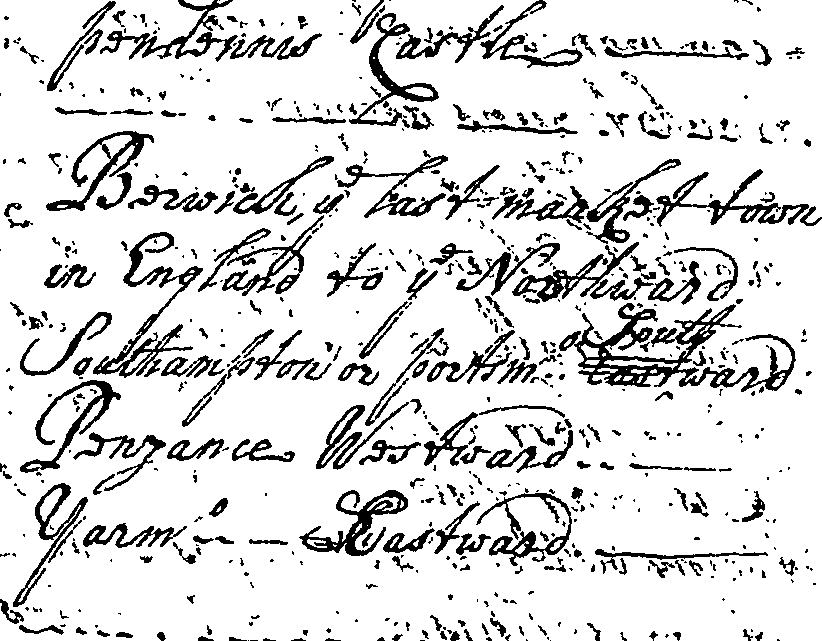 pendennis Castle
Berwick, yᵉ last market town
in England to yᵉ Northward
Southampton or portsm.. or South Eastward
Penzance Westward
Yarmº Eastward